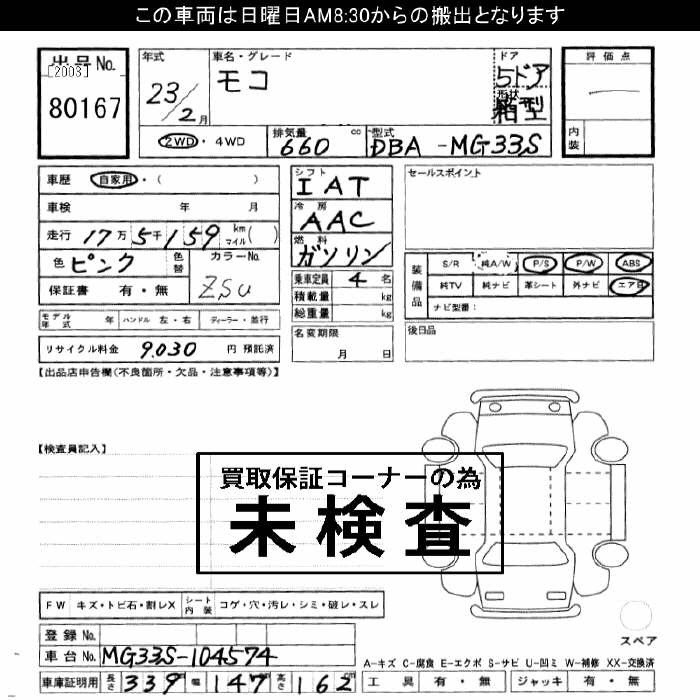 この車両は日曜日AM8:30からの搬出となります
出品No.
[2003]
80167
年式
23/2月
車名・グレード
モコ
ドア
5ドア
形状
箱型
評価点
内装
2WD・4WD
排気量
660 cc
型式
DBA-MG33S
車歴 自家用・( )
車検 年 月
走行 17万5千159 km マイル( )
色 ピンク 色替
カラーNo.
ZSU
保証書 有・無
モデル年式 年 ハンドル 左・右 ディーラー・並行
リサイクル料金 9,030 円 預託済
シフト
IAT
冷房
AAC
燃料
ガソリン
乗車定員 4 名
積載量 kg
総重量 kg
名変期限
月 日
セールスポイント
装備品
S/R 純A/W P/S P/W ABS
純TV 純ナビ 革シート 外ナビ エアB
ナビ型番:
後日品
【出品店申告欄(不良箇所・欠品・注意事項等)】
【検査員記入】
買取保証コーナーの為
未検査
FW キズ・トビ石・割レX シート内装 コゲ・穴・汚レ・シミ・破レ・スレ
スペア
登録No.
車台No. MG33S-104574
車庫証明用 長さ 339 幅 147 高さ 162 cm
A-キズ C-腐食 E-エクボ S-サビ U-凹ミ W-補修 XX-交換済
工具 有・無 ジャッキ 有・無